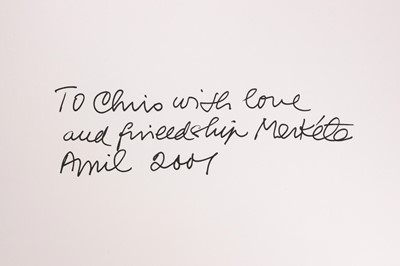 To Chris with love
and friendship Markéta
April 2001